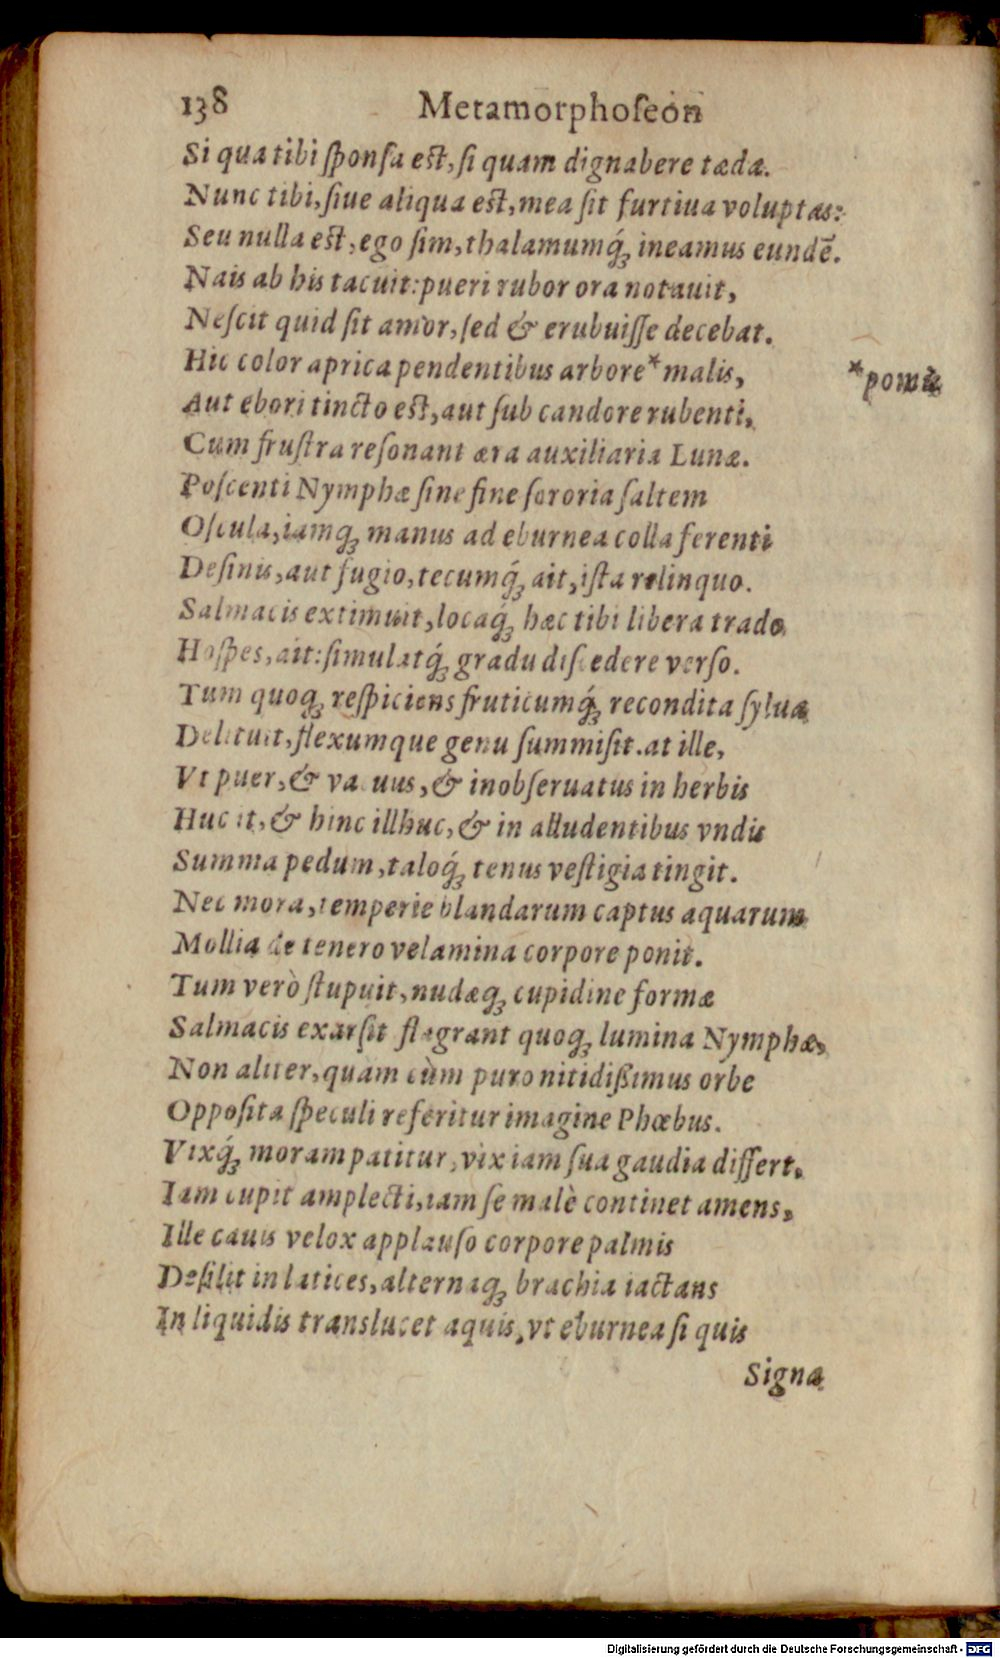 138 Metamorphoſeōn
Si qua tibi ſponſa eſt, ſi quam dignabere tædæ.
Nunc tibi, ſiue aliqua eſt, mea ſit furtiua voluptas:
Seu nulla eſt, ego ſim, thalamumq́ꝫ ineamus eundē.
Nais ab his tacuit: pueri rubor ora notauit,
Neſcit quid ſit amor, ſed & erubuiſſe decebat.
Hic color aprica pendentibus arbore * malis,
*pomis
Aut ebori tincto eſt, aut ſub candore rubenti,
Cum fruſtra reſonant æra auxiliaria Lunæ.
Poſcenti Nymphæ ſine fine ſororia ſaltem
Oſcula, iamqꝫ manus ad eburnea colla ferenti
Deſinis, aut fugio, tecumq́ꝫ ait, iſta relinquo.
Salmacis extimuit, locaq́ꝫ hæc tibi libera trado
Hoſpes, ait: ſimulatq́ꝫ gradu diſcedere verſo.
Tum quoqꝫ reſpiciens fruticumq́ꝫ recondita ſylua
Delituit, flexumque genu ſummiſit. at ille,
Vt puer, & vacuus, & inobſeruatus in herbis
Huc it, & hinc illhuc, & in alludentibus vndis
Summa pedum, taloq́ꝫ tenus veſtigia tingit.
Nec mora, temperie blandarum captus aquarum
Mollia de tenero velamina corpore ponit.
Tum verò ſtupuit, nudæqꝫ cupidine formæ
Salmacis exarſit flagrant quoqꝫ lumina Nymphæ,
Non aliter, quàm cùm puro nitidißimus orbe
Oppoſita ſpeculi referitur imagine Phœbus.
Vixq́ꝫ moram patitur, vix iam ſua gaudia differt.
Iam cupit amplecti, iam ſe malè continet amens,
Ille cauis velox applauſo corpore palmis
Deſilit in latices, alternaqꝫ brachia iactans
In liquidis translucet aquis, vt eburnea ſi quis
Signa
Digitalisierung gefördert durch die Deutsche Forschungsgemeinschaft - DFG